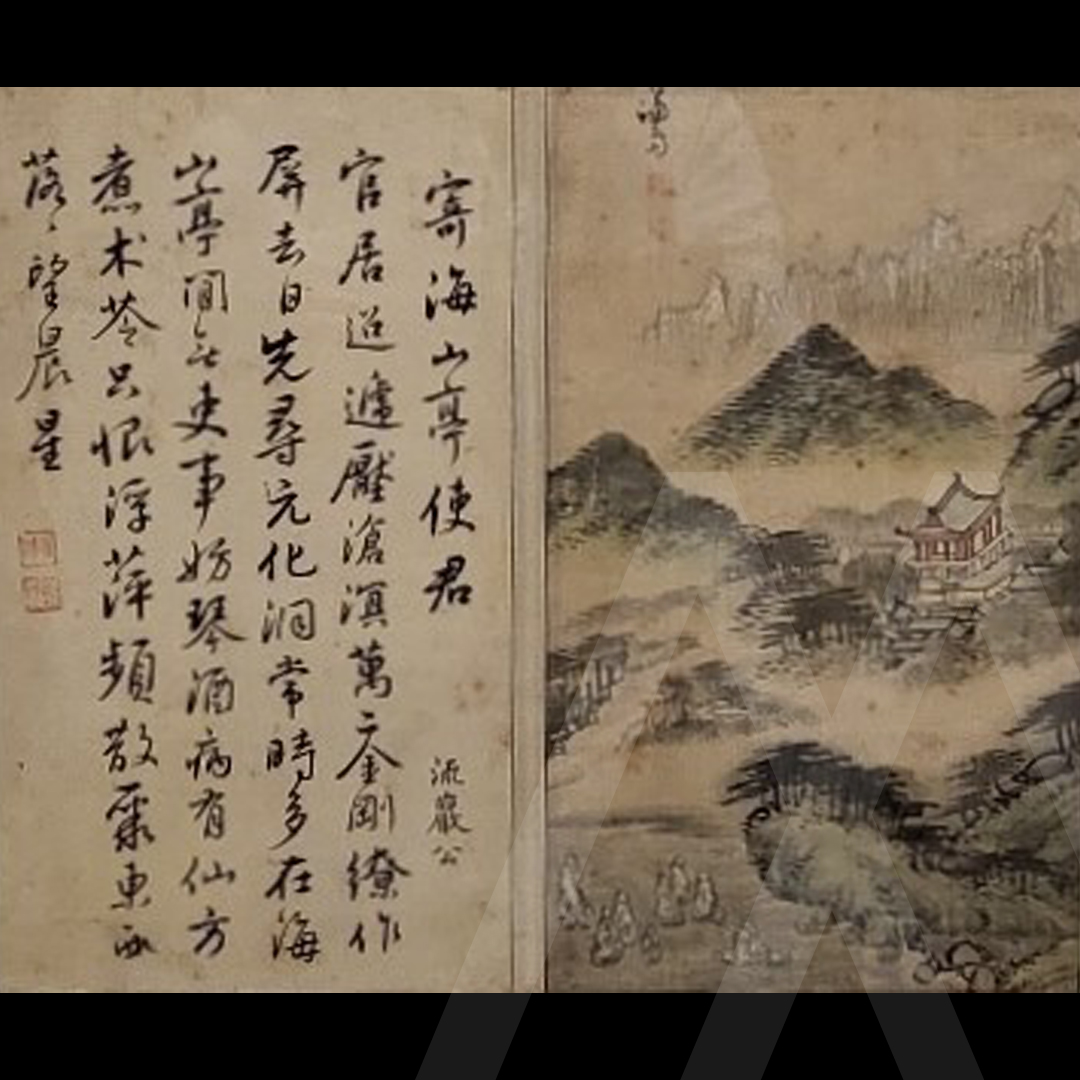 寄海山亭使君 流巖公
官居迢遞壓滄溟萬二金剛繚作
屏去日先尋元化洞常時多在海
山亭閒無吏事妨琴酒病有仙方
煮朮苓只恨浮萍頻散聚東西
落〻望晨星